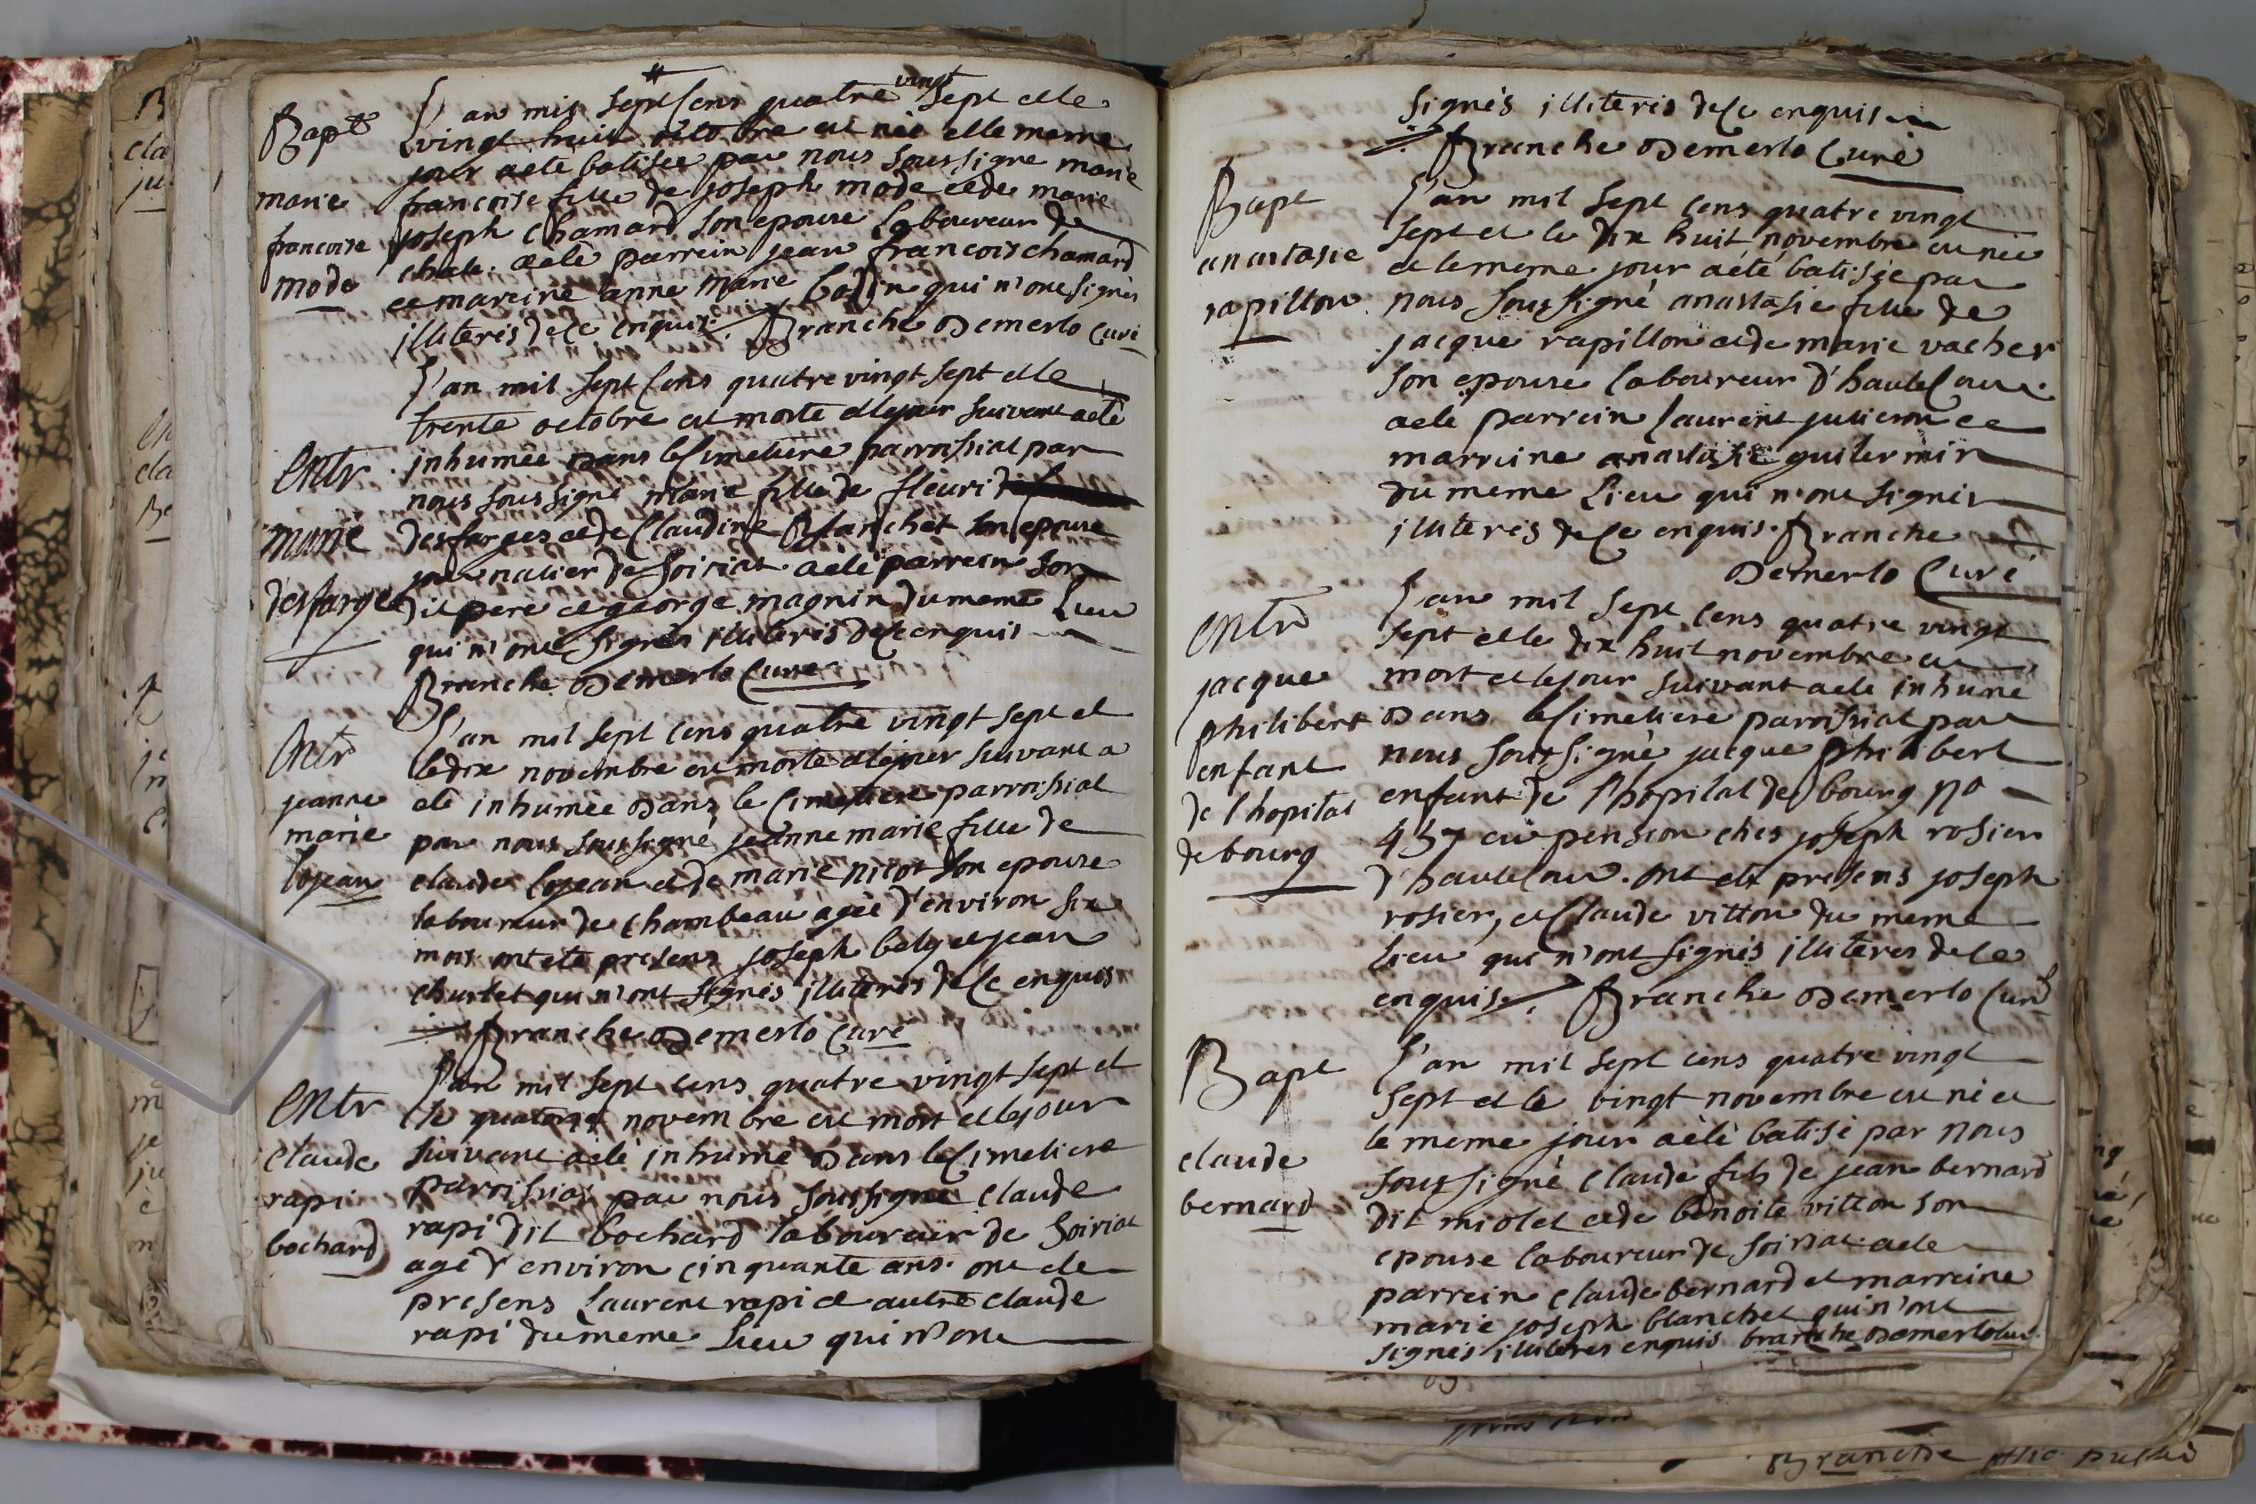 Bapt
marie
francoise
mode
L'an mil sept cens quatre vingt sept et le
vingt huit octobre est née et le meme
jour a ete batisée par nous soussigne marie
francoise fille de joseph mode et de marie
joseph chamard son epouse laboureur de
chale. a eté parrein jean francois chamard
et mareine anne marie bodin qui n'ont signés
illiteris de ce enquis. Branche Demerlo curé
Entr
marie
desfarges
L'an mil sept cens quatre vingt sept et le
trente octobre est morte et le jour suivant a eté
inhumée dans le cimetiere parroissial par
nous soussigné marie fille de fleuri
desfarges et de Claudine Blanchet son epouse
journalier de soiriat a eté parrein son
dit pere et george magnin du meme lieu
qui n'ont signés illiteris de ce enquis
Branche Demerlo curé
Entr
jeanne
marie
lojean
L'an mil sept cens quatre vingt sept et
le dix novembre est morte et le jour suivant a
eté inhumée dans le cimetiere parroissial
par nous soussigné jeanne marie fille de
claude lojean et de marie nicot son epouse
laboureur de chambeau agée d'environ six
mois ont eté presens joseph bely et jean
churlet qui n'ont signés illiteris de ce enquis
Branche Demerlo curé
Entr
claude
rapi
bochard
L'an mil sept cens quatre vingt sept et
le quatorze novembre est mort et le jour
suivant a eté inhumé dans le cimetiere
paroissial par nous soussigné claude
rapi dit bochard laboureur de soiriat
agé d'environ cinquante ans. ont eté
presens laurent rapi et autre claude
rapi du meme lieu qui n'ont
signés illiteris de ce enquis
Branche Demerlo curé
Bapt
anastasie
rapillon
L'an mil sept cens quatre vingt
sept et le dix huit novembre est née
et le meme jour a été batisée par
nous soussigné anastasie fille de
jacque rapillon et de marie vacher
son epouse laboureur d'hautecour.
a eté parrein laurent julieron et
marreine anastasie guillermin
du meme lieu qui n'ont signés
illiteris de ce enquis. Branche
Demerlo curé
Entr
jacque
philibert
enfant
de l'hopital
de bourg
L'an mil sept cens quatre vingt
sept et le dix huit novembre est
mort et le jour suivant a eté inhumé
dans le cimetiere paroissial par
nous soussigné jacque philibert
enfant de l'hopital de bourg no
437 en pension ches joseph rosier
d'hautecour. ont eté presens joseph
rosier, et Claude vitton du meme
lieu qui n'ont signés illiteres de ce
enquis. Branche Demerlo curé
Bapt
claude
bernard
L'an mil sept cens quatre vingt
sept et le vingt novembre est né et
le meme jour a été batisé par nous
soussigné claude fils de jean bernard
dit miolet et de benoite vitton son
epouse laboureur de soiriat a ete
parrein claude bernard et marreine
marie joseph blanchet qui n'ont
signés illiteres enquis branche Demerlo curé